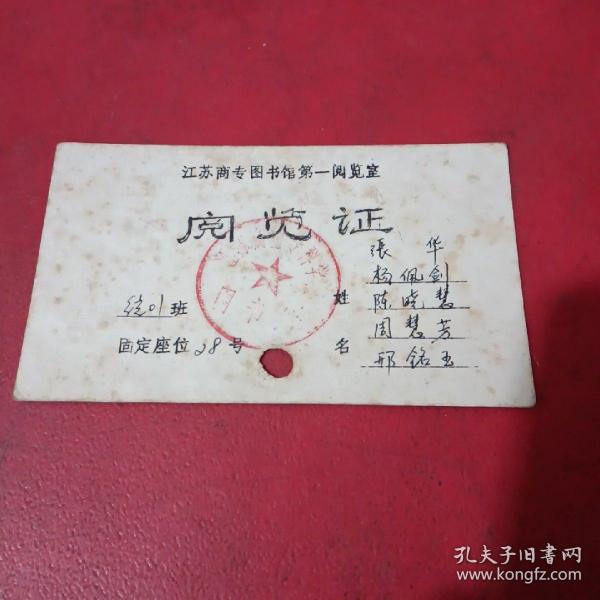 江苏商专图书馆第一阅览室
阅览证
張 华
杨佩剑
姓 陈晓慧
班
周慧芳
固定座位28号
名 邢铭玉
孔夫子旧书网
www.kongfz.com